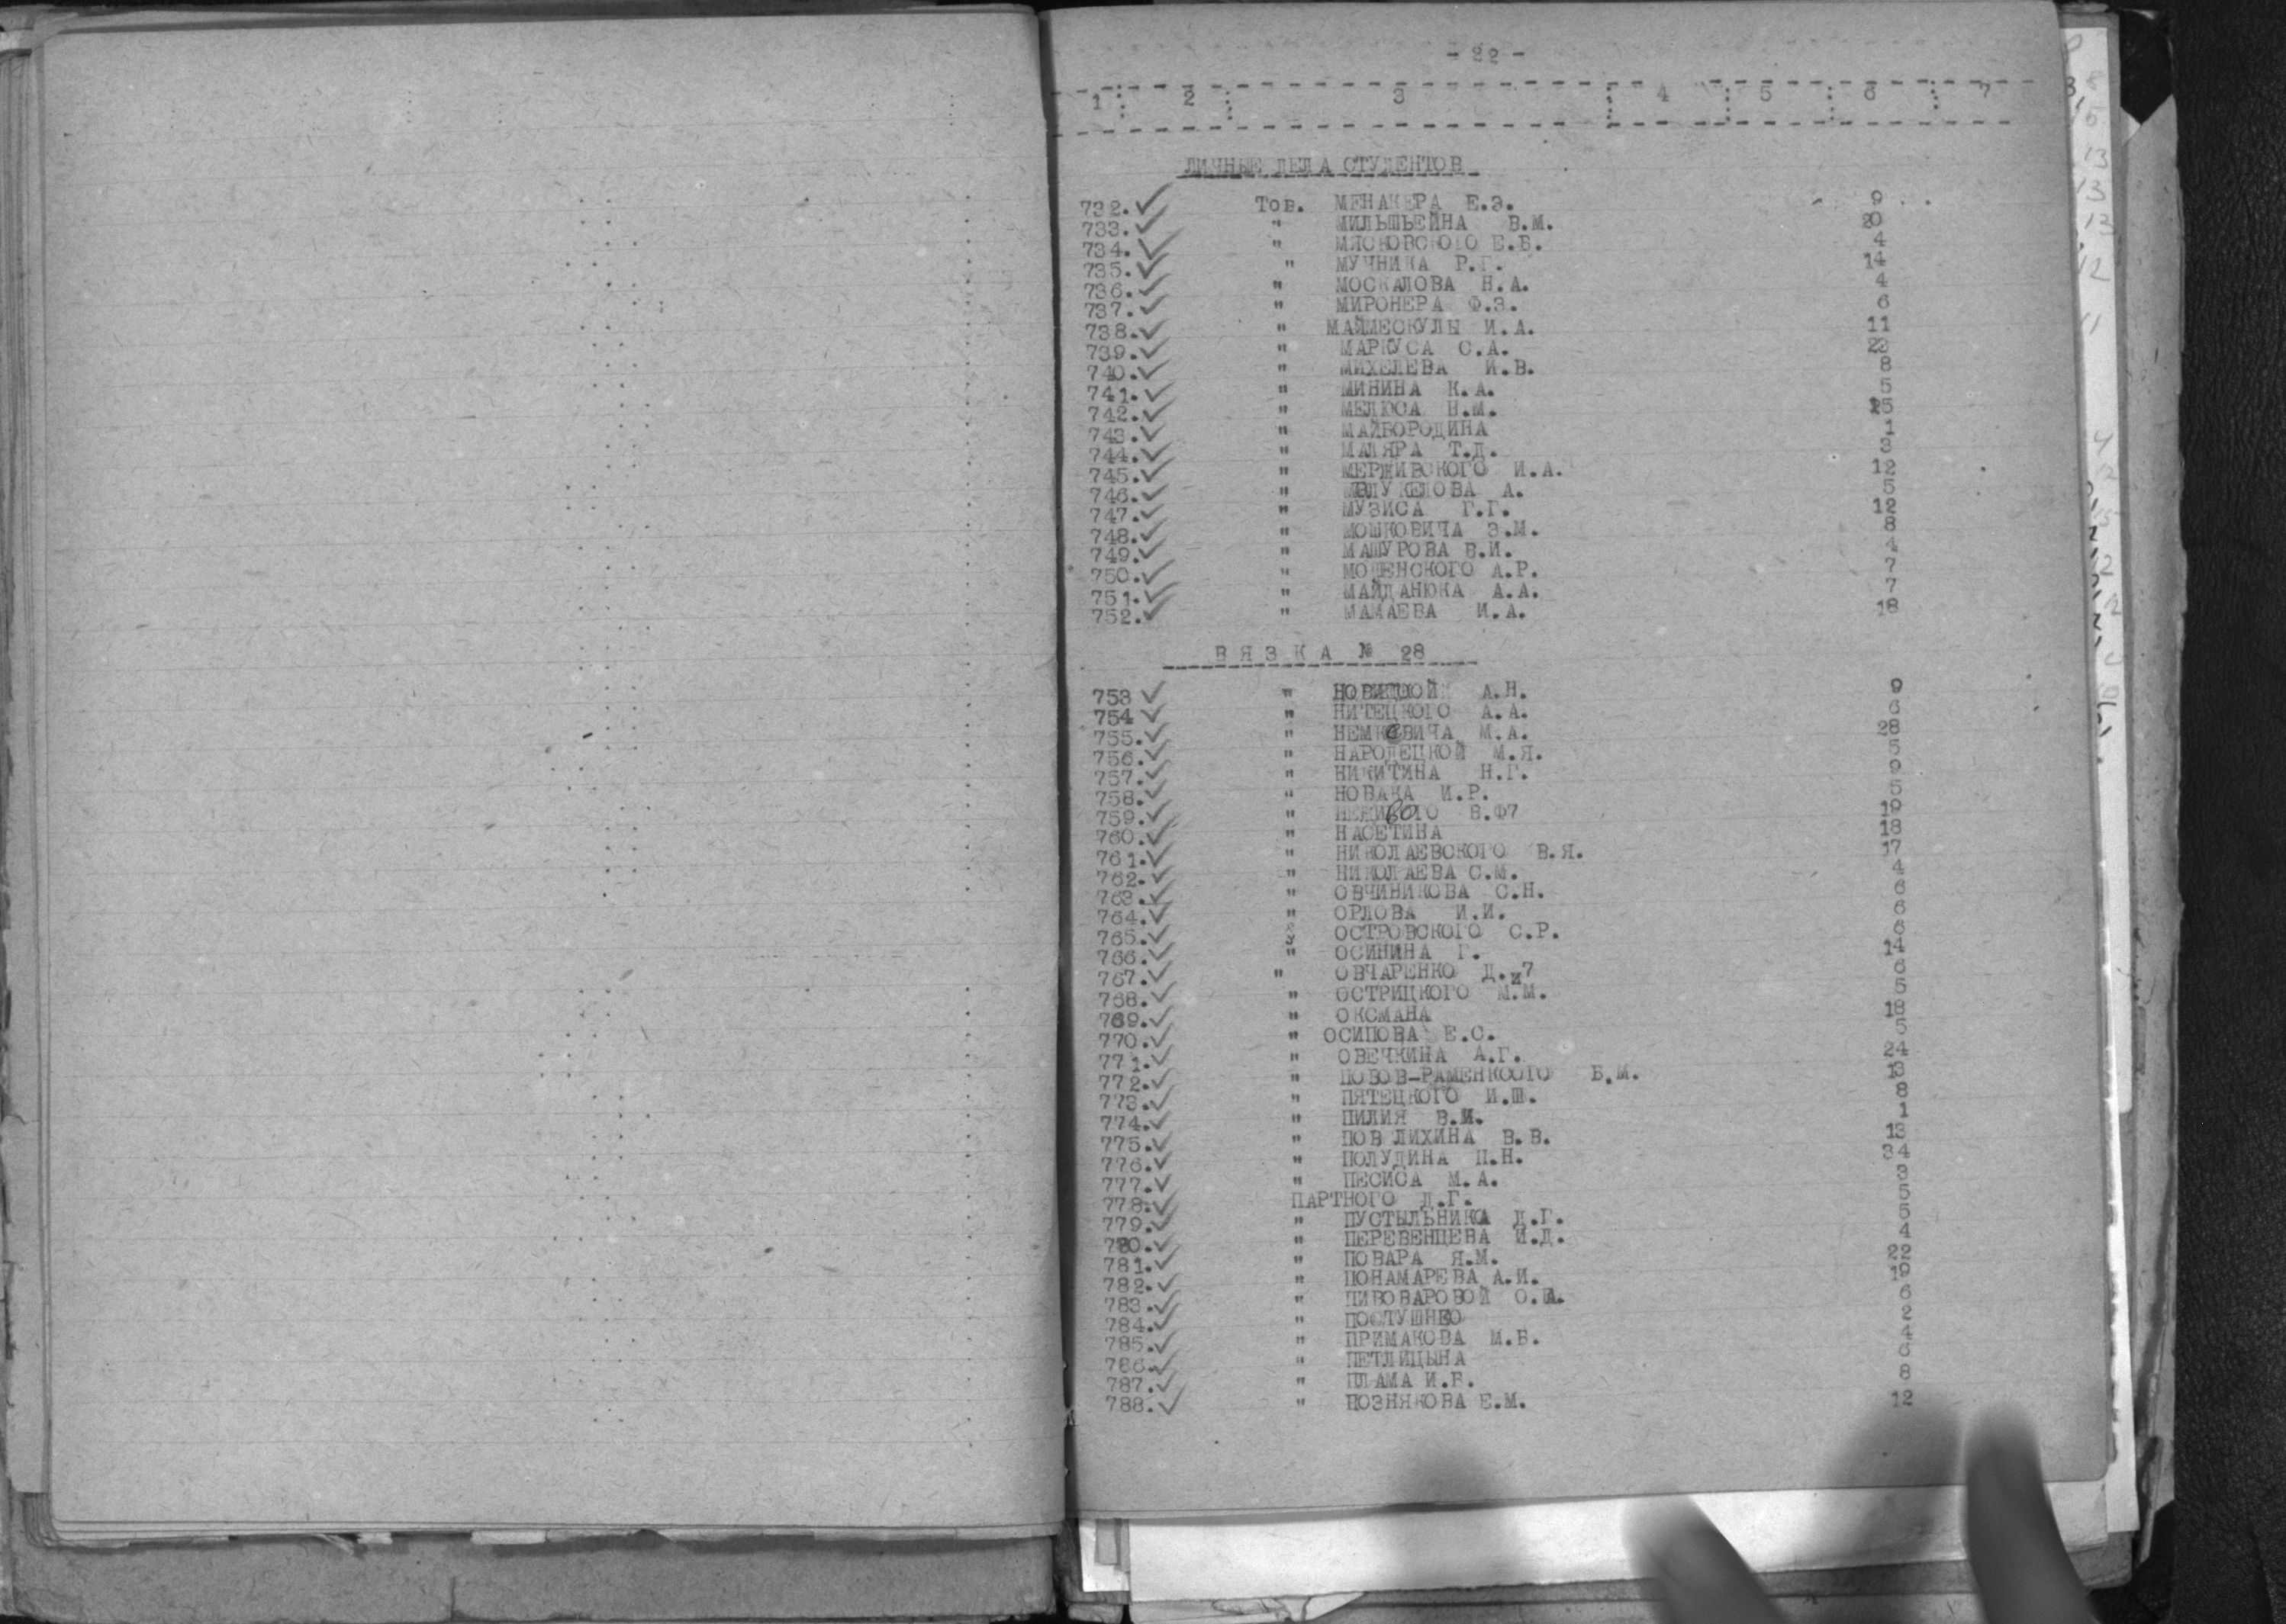 - 22 -
1 2 3 4 5 6 7
ЛИЧНЫЕ ДЕЛА СТУДЕНТОВ
732. Тов. МЕНАКЕРА Е.Э. 9
733. " МИЛЬШЬЕЙНА В.М. 20
734. " МЯСКОВСКОГО Е.Б. 4
735. " МУЧНИКА Р.Г. 14
736. " МОСКАЛОВА Н.А. 4
737. " МИРОНЕРА Ф.Э. 6
738. " МАЙМЕСКУЛЫ И.А. 11
739. " МАРКУСА С.А. 23
740. " МИХЕЛЕВА И.В. 8
741. " МИНИНА К.А. 5
742. " МЕЛЮСА Н.М. 25
743. " МАЙБОРОДИНА 1
744. " МАЛЯРА Т.Д. 3
745. " МЕРЖИВСКОГО И.А. 12
746. " А. 5
747. " МУЗИСА Г.Г. 12
748. " МОШКОВИЧА Э.М. 8
749. " МАШУРОВА В.И. 4
750. " МОШЕНСКОГО А.Р. 7
751. " МАЙДАНЮКА А.А. 7
752. " МАМАЕВА И.А. 18
ВЯЗКА № 28
753 " А.Н. 9
754 " НИТЕЦКОГО А.А. 6
755. " НЕМКЕВИЧА М.А. 28
756. " НАРОДЕЦКОЙ М.Я. 5
757. " НИКИТИНА Н.Г. 9
758. " НОВАКА И.Р. 5
759. " НЕЖИВОГО В.Ф7 19
760. " НАСЕТИНА 18
761. " НИКОЛАЕВСКОГО В.Я. 17
762. " НИКОЛАЕВА С.М. 4
763. " ОВЧИНИКОВА С.Н. 6
764. " ОРЛОВА И.И. 6
765. " ОСТРОВСКОГО С.Р. 6
766. " ОСИНИНА Г. 14
767. " ОВЧАРЕНКО Д.И7 6
768. " ОСТРИЦКОГО М.М. 5
769. " ОКСМАНА 18
770. " ОСИПОВА Е.С. 5
771. " ОВЕЧКИНА А.Г. 24
772. " ПОВОВ-РАМЕНКСОГО Б.М. 13
773. " ПЯТЕЦКОГО И.Ш. 8
774. " ПИЛИЯ В.И. 1
775. " ПОВЛИХИНА В.В. 13
776. " ПОЛУДИНА П.Н. 34
777. " ПЕСИСА М.А. 3
778. ПАРТНОГО Д.Г. 5
779. " ПУСТЫЛЬНИКА Д.Г. 5
780. " ПЕРЕВЕНЦЕВА И.Д. 4
781. " ПОВАРА Я.М. 22
782. " ПОНАМАРЕВА А.И. 19
783. " ПИВОВАРОВОЙ 6
784. " 2
785. " ПРИМАКОВА М.Б. 4
786. " ПЕТЛИЦЫНА 6
787. " ПЛАМА И.В. 8
788. " ПОЗНЯКОВА Е.М. 12